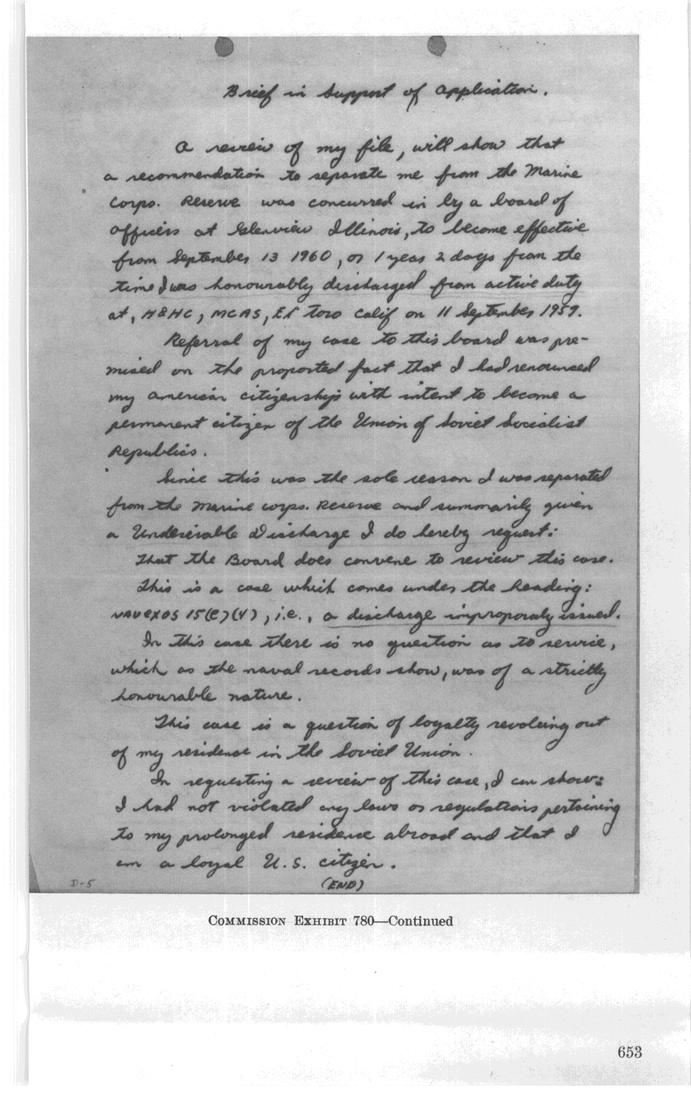 Brief in Support of Application.
A review of my file, will show that
a recommendation to separate me from the Marine
Corps. Reserve was concurred in by a board of
officers at Glenview Illinois, to become effective
from September 13 1960, or 1 year 2 days from the
time I was honourably discharged from active duty
at, H&HC, MCAS, El toro Calif on 11 September 1959.
Referral of my case to this board was pre-
mised on the proported fact that I had renounced
my american citizenship with intent to become a
permanent citizen of the Union of Soviet Socialist
Republics.
Since this was the sole reason I was separated
from the Marine corps. Reserve and summarily given
a Undesirable Discharge I do hereby request:
That the Board does convene to review this case.
This is a case which comes under the heading:
NAVEXOS 15(E)(4), i.e., a discharge improporaly issued.
In this case there is no question as to service,
which as the naval records show, was of a strictly
honourable nature.
This case is a question of loyalty revolving out
of my residence in the Soviet Union.
In requesting a review of this case, I can show:
I had not violated any laws or regulations pertaining
to my prolonged residence abroad and that I
am a loyal U.S. citizen.
D-5 (END)
COMMISSION EXHIBIT 780—Continued
653